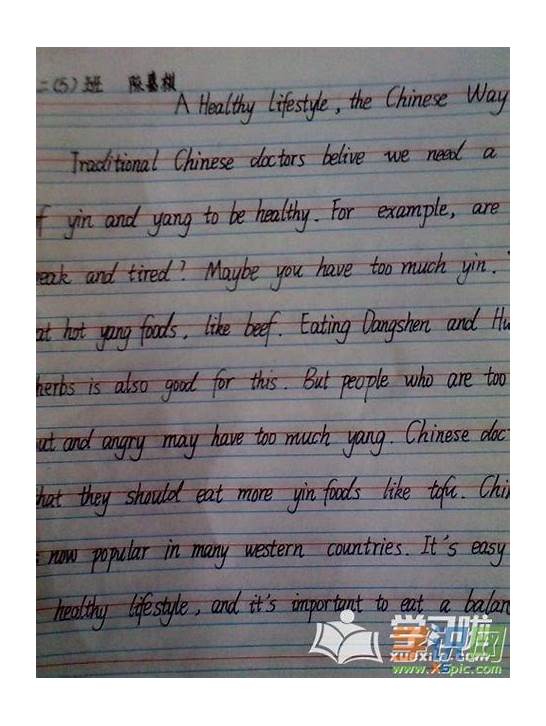 二(5)班 陈嘉棋
A Healthy Lifestyle, the Chinese Way
Traditional Chinese doctors belive we need a
f yin and yang to be healthy. For example, are
eak and tired? Maybe you have too much yin.
at hot yang foods, like beef. Eating Dangshen and Hu
herbs is also good for this. But people who are too
ut and angry may have too much yang. Chinese doc
hat they should eat more yin foods like tofu. Chi
now popular in many western countries. It's easy
healthy lifestyle, and it's important to eat a balan
学习啦
XUEXILA.COM
www.XSpic.com